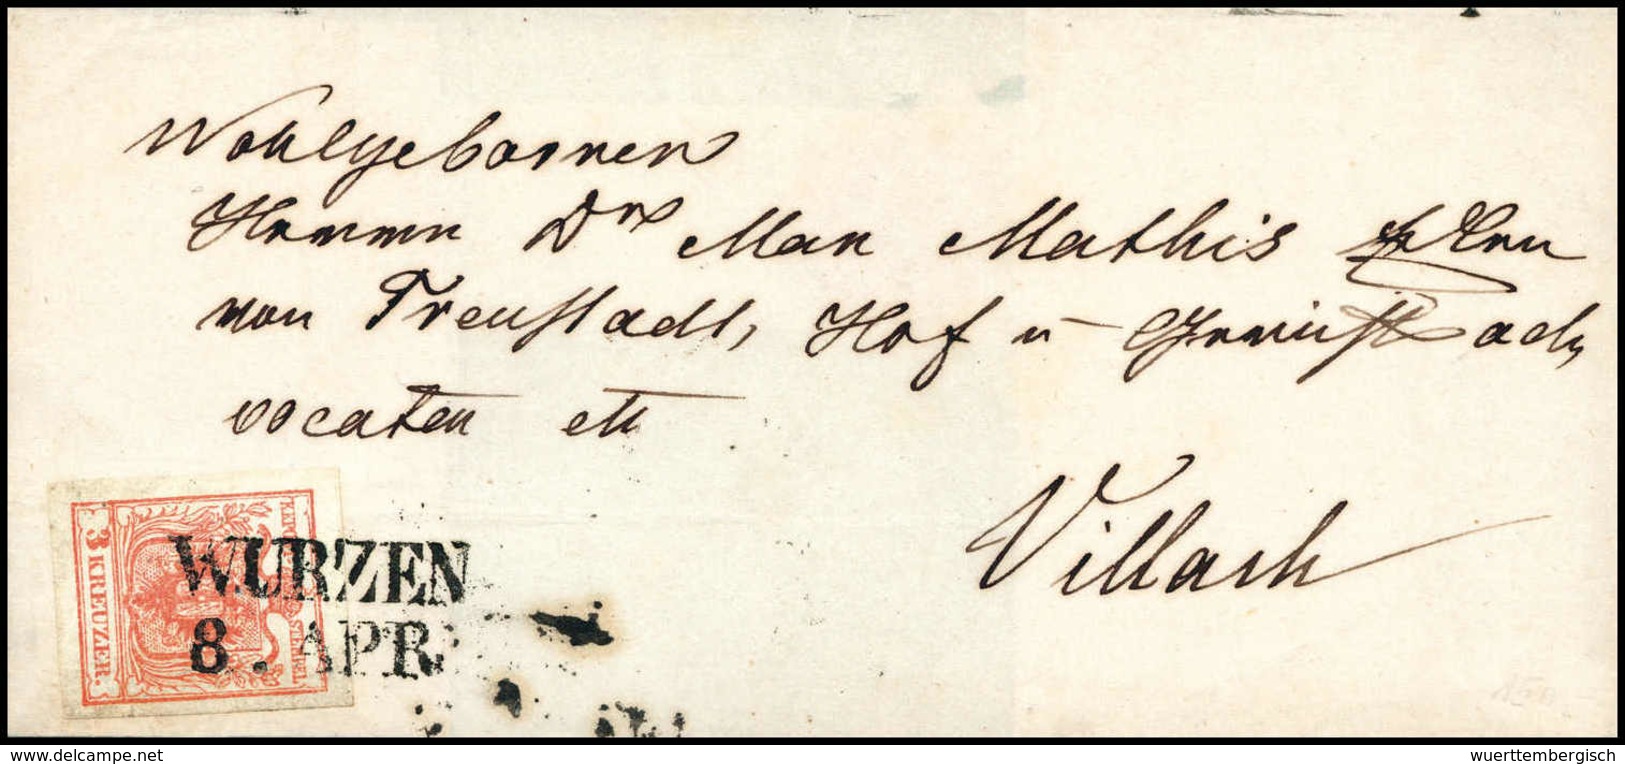 Wohlgebornen
Herrn Dr Max Mathis
von Treustadt, Hof u Gerichts adv
vocaten etc
Villach
3 KREUZER.
STEMPEL
WURZEN
8. APR.
delcampe.net
wuerttembergisch